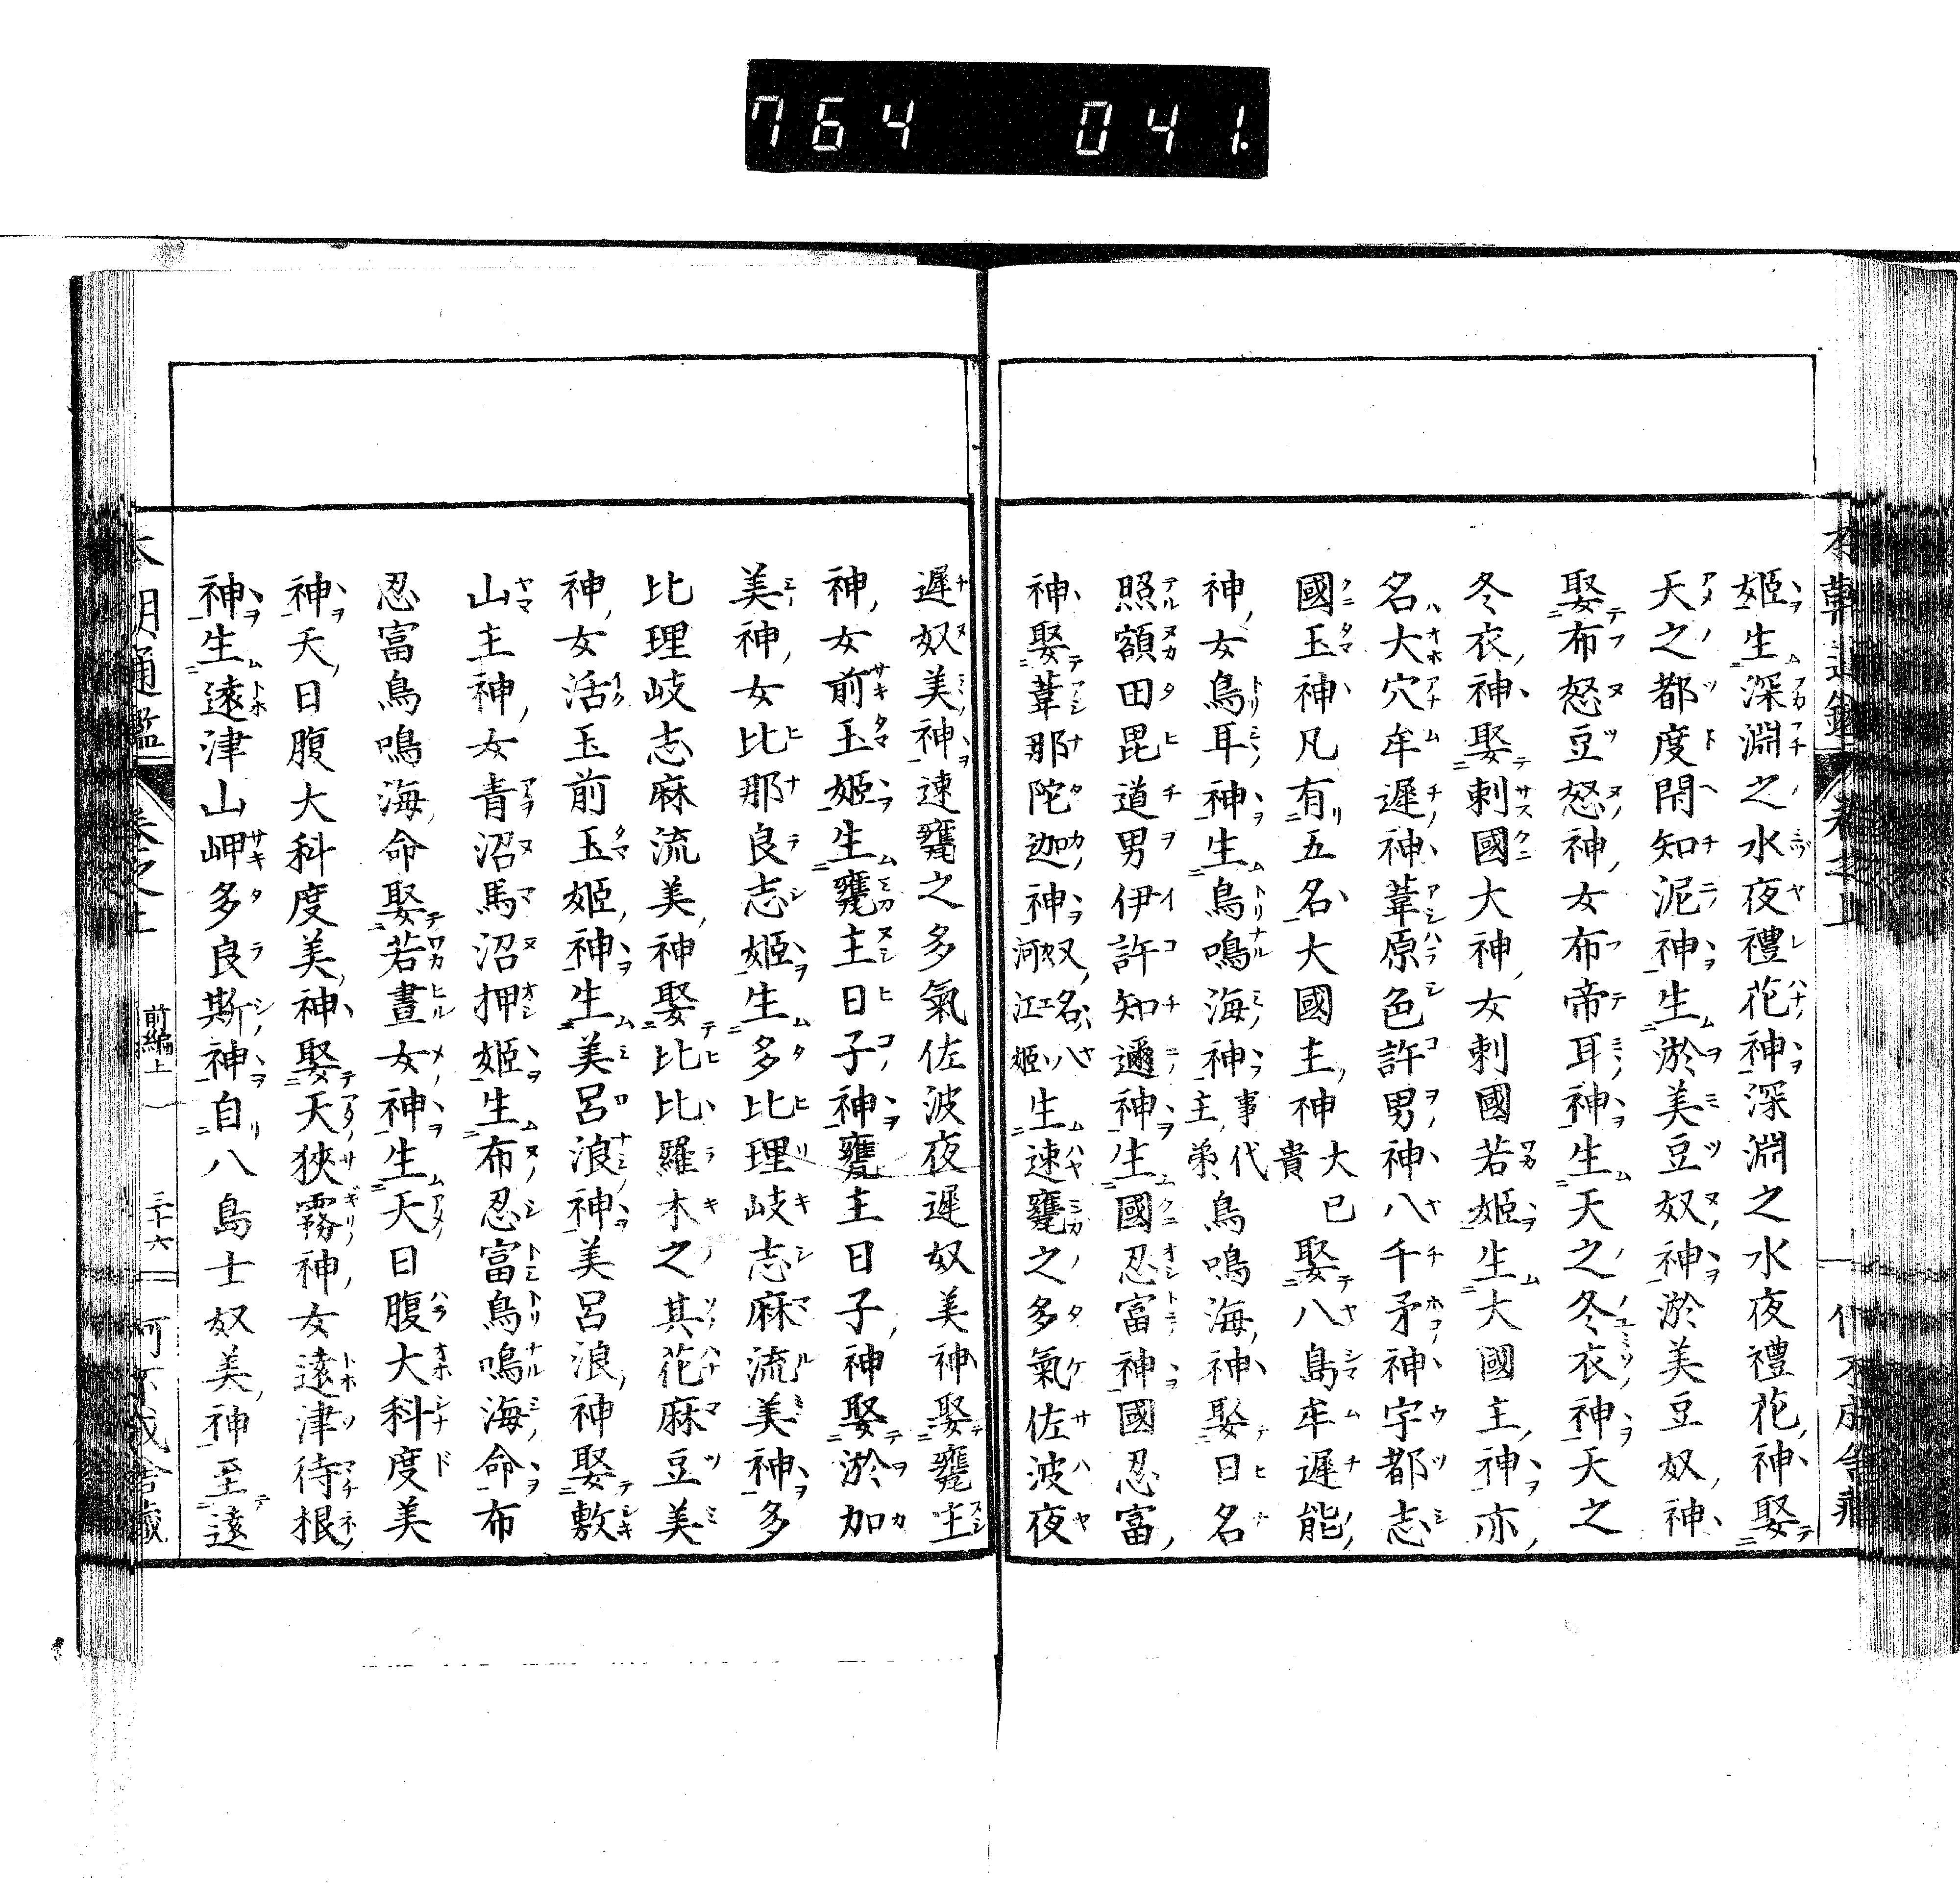 764 041.
姬生深淵之水夜禮花神深淵之水夜禮花神娶
天之都度閇知泥神生淤美豆奴神淤美豆奴神
娶布怒豆怒神女布帝耳神生天之冬衣神天之
冬衣神娶刺國大神女刺國若姬生大國主神亦
名大穴牟遲神葦原色許男神八千矛神宇都志
國玉神凡有五名大國主神大已貴娶八島牟遲能
神女鳥耳神生鳥鳴海神事代主弟鳥鳴海神娶日名
照額田毘道男伊許知邇神生國忍富神國忍富
神娶葦那陀迦神又名八河江姬生速甕之多氣佐波夜
遲奴美神速甕之多氣佐波夜遲奴美神娶甕主
神女前玉姬生甕主日子神甕主日子神娶淤加
美神女比那良志姬生多比理岐志麻流美神多
比理岐志麻流美神娶比比羅木之其花麻豆美
神女活玉前玉姬神生美呂浪神美呂浪神娶敷
山主神女青沼馬沼押姬生布忍富鳥鳴海命布
忍富鳥鳴海命娶若晝女神生天日腹大科度美
神天日腹大科度美神娶天狹霧神女遠津待根
神生遠津山岬多良斯神自八島士奴美神至遠
本朝通鑑 卷之上 前編上 三十六